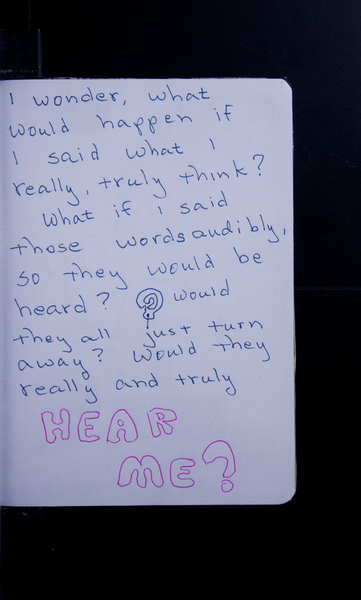 I wonder, what
would happen if
I said what I
really, truly think?
What if I said
those words audibly,
so they would be
heard? ? would
they all just turn
away? Would they
really and truly
HEAR
ME?